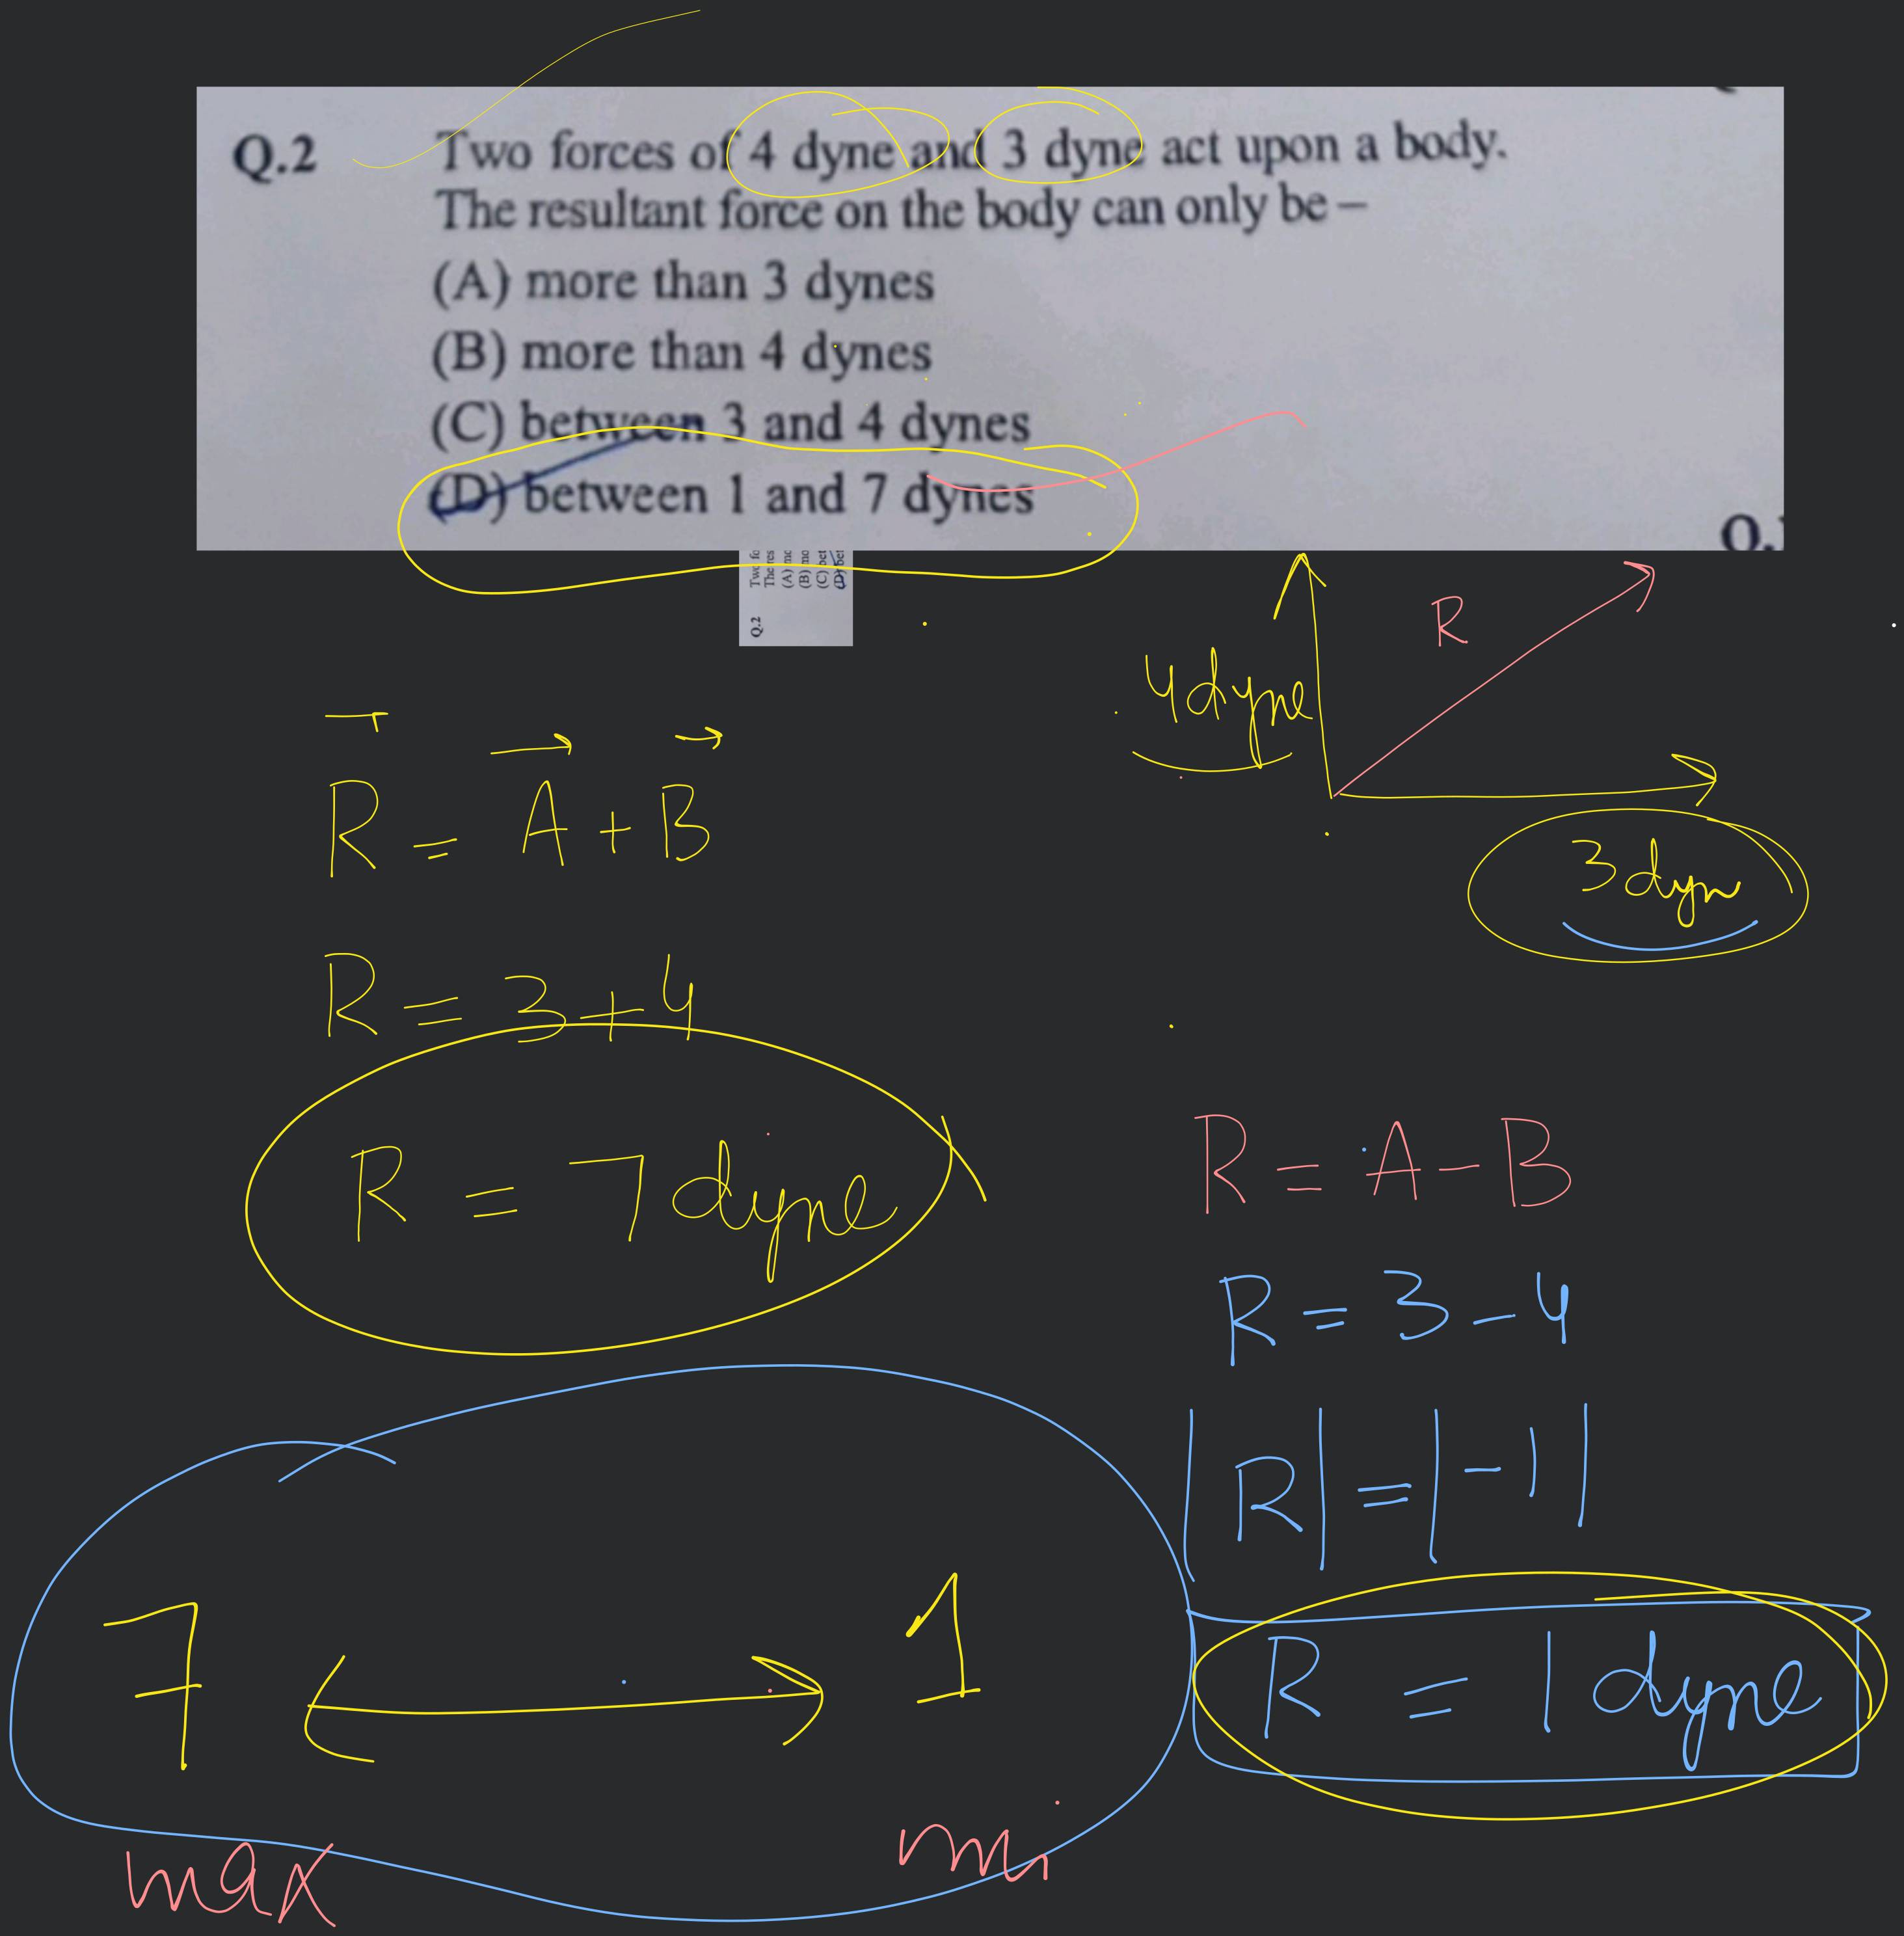 Q.2 Two forces of 4 dyne and 3 dyne act upon a body.
The resultant force on the body can only be –
(A) more than 3 dynes
(B) more than 4 dynes
(C) between 3 and 4 dynes
(D) between 1 and 7 dynes
Q.
Q.2 Two fo
The res
(A) mo
(B) mo
(C) bet
(D) bet
R
4dyne
3dyn
R = A + B
R = 3 + 4
R = 7 dyne
R = A - B
R = 3 - 4
|R| = |-1|
R = 1 dyne
7 1
max